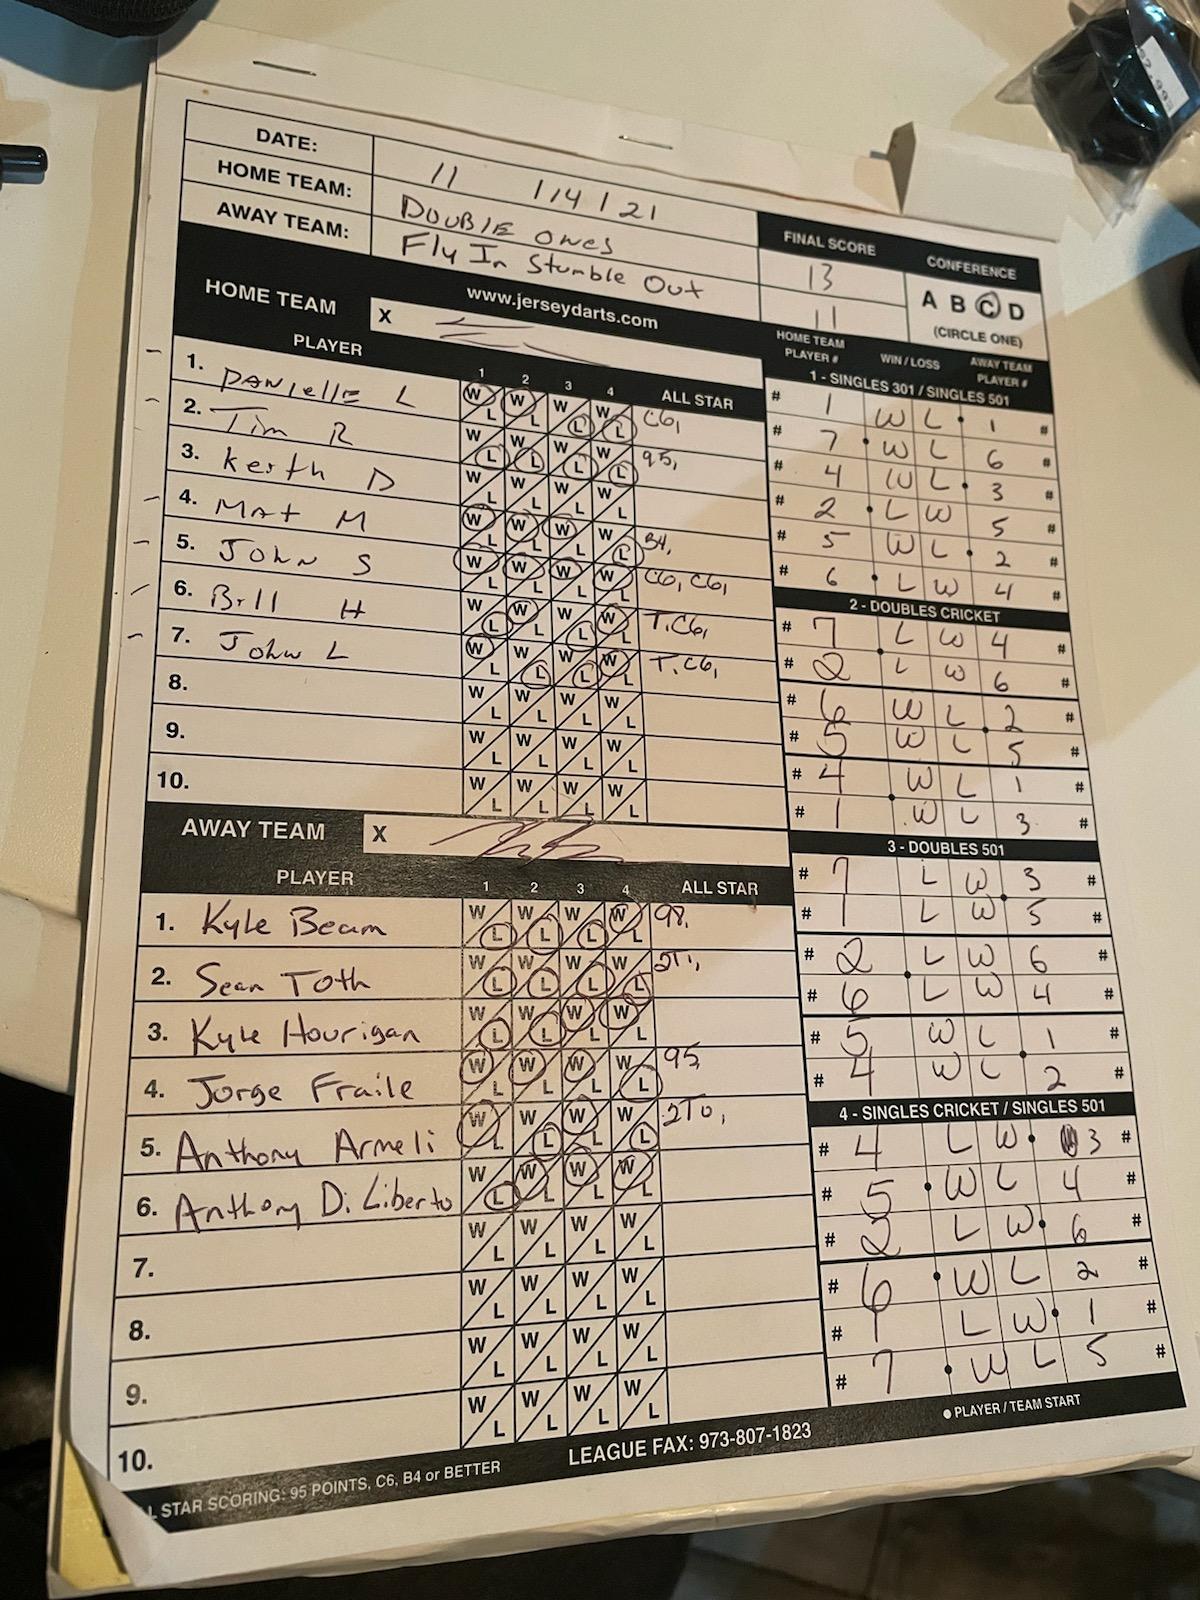 DATE: 11 1/4 / 21
HOME TEAM: DOUBLE ONES
AWAY TEAM: Fly In Stumble Out
FINAL SCORE CONFERENCE
13
11
A B C D
(CIRCLE ONE)
www.jerseydarts.com
HOME TEAM X
PLAYER 1 2 3 4 ALL STAR
1. DANIELLE L W L W L W L W L C6,
2. Tim R W L W L W L W L 95,
3. Keith D W L W L W L W L
4. MAT M W L W L W L W L B4,
5. JOHN S W L W L W L W L C6, C6,
6. Bill H W L W L W L W L T.C6,
7. JOHN L W L W L W L W L T.C6,
8. W L W L W L W L
9. W L W L W L W L
10. W L W L W L W L
AWAY TEAM X
PLAYER 1 2 3 4 ALL STAR
1. Kyle Beam W L W L W L W L 98,
2. Sean Toth W L W L W L W L
3. Kyle Hourigan W L W L W L W L
4. Jorge Fraile W L W L W L W L 95,
5. Anthony Armeli W L W L W L W L
6. Anthony Di Liberto W L W L W L W L
7. W L W L W L W L
8. W L W L W L W L
9. W L W L W L W L
10. W L W L W L W L
HOME TEAM PLAYER # WIN / LOSS AWAY TEAM PLAYER #
1 - SINGLES 301 / SINGLES 501
# 1 W L 1 #
# 7 W L 6 #
# 4 W L 3 #
# 2 L W 5 #
# 5 W L 2 #
# 6 L W 4 #
2 - DOUBLES CRICKET
# 7 L W 4 #
# 2 L W 6 #
# 6 W L 2 #
# 5 W L 5 #
# 4 W L 1 #
# 1 W L 3 #
3 - DOUBLES 501
# 7 L W 3 #
# 1 L W 5 #
# 2 L W 6 #
# 6 L W 4 #
# 5 W L 1 #
# 4 W L 2 #
4 - SINGLES CRICKET / SINGLES 501
# 4 L W 3 #
# 5 W L 4 #
# 2 L W 6 #
# 6 W L 2 #
# 1 L W 1 #
# 7 W L 5 #
● PLAYER / TEAM START
STAR SCORING: 95 POINTS, C6, B4 or BETTER
LEAGUE FAX: 973-807-1823